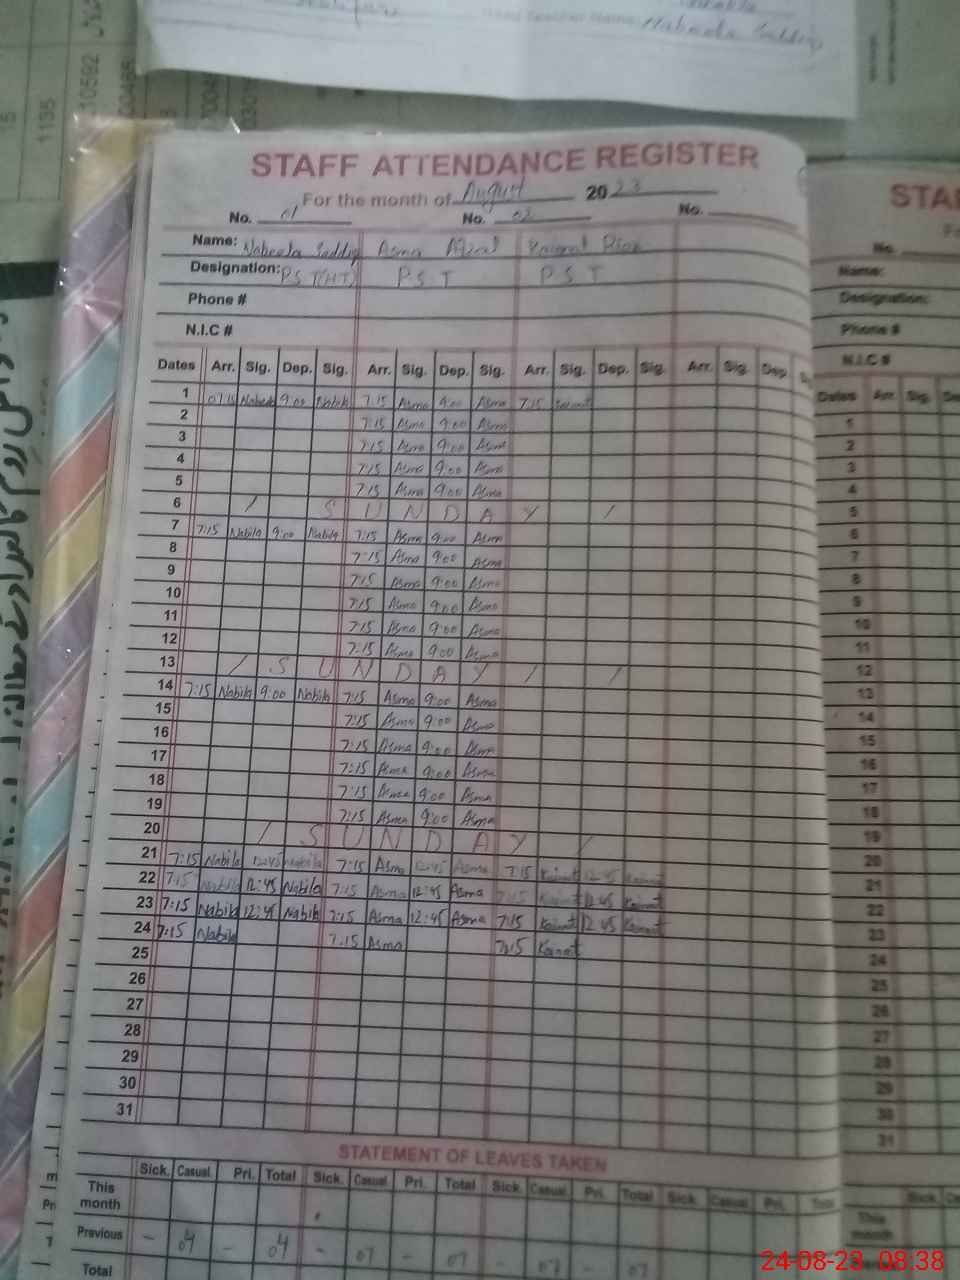 Head Teacher Name: Nabeela Saddiq
10592
1135
15
STAFF ATTENDANCE REGISTER
For the month of August 2023
No. 01 No. 02 No.
Name: Nabeela Saddiq Asma Afzal
Designation: P.S.T(H.T) P S T P S T
Phone #
N.I.C #
Dates Arr. Sig. Dep. Sig. Arr. Sig. Dep. Sig. Arr. Sig. Dep. Sig. Arr. Sig. Dep.
1 07:15 Nabeela 9:00 Nabila 7:15 Asma 9:00 Asma 7:15 Kainat
2 7:15 Asma 9:00 Asma
3 7:15 Asma 9:00 Asma
4 7:15 Asma 9:00 Asma
5 7:15 Asma 9:00 Asma
6 / S U N D A Y /
7 7:15 Nabila 9:00 Nabila 7:15 Asma 9:00 Asma
8 7:15 Asma 9:00 Asma
9 7:15 Asma 9:00 Asma
10 7:15 Asma 9:00 Asma
11 7:15 Asma 9:00 Asma
12 7:15 Asma 9:00 Asma
13 / S U N D A Y / /
14 7:15 Nabila 9:00 Nabila 7:15 Asma 9:00 Asma
15 7:15 Asma 9:00 Asma
16 7:15 Asma 9:00 Asma
17 7:15 Asma 9:00 Asma
18 7:15 Asma 9:00 Asma
19 7:15 Asma 9:00 Asma
20 / S U N D A Y /
21 7:15 Nabila 12:45 Nabila 7:15 Asma 12:45 Asma 7:15 Kainat 12:45 Kainat
22 7:15 Nabila 12:45 Nabila 7:15 Asma 12:45 Asma 7:15 Kainat 12:45 Kainat
23 7:15 Nabila 12:45 Nabila 7:15 Asma 12:45 Asma 7:15 Kainat 12:45 Kainat
24 7:15 Nabila 7:15 Asma 7:15 Kainat
25
26
27
28
29
30
31
STATEMENT OF LEAVES TAKEN
Sick. Casual. Pri. Total Sick. Casual. Pri. Total Sick. Casual. Pri. Total Sick. Casual. Pri. Total
This month
Previous - 04 - 04 - 07 - 07 - 07 - 07
Total
STA
No.
Name:
Designation:
Phone #
N.I.C #
Dates Arr. Sig.
1
2
3
4
5
6
7
8
9
10
11
12
13
14
15
16
17
18
19
20
21
22
23
24
25
26
27
28
29
30
31
Sick.
This month
24-08-23 08:38